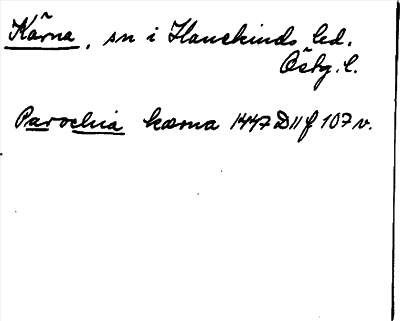 Kärna, sn i Hanekinds hd.
Östg. l.
Parochia kærna 1447 D 11 f 107 v.